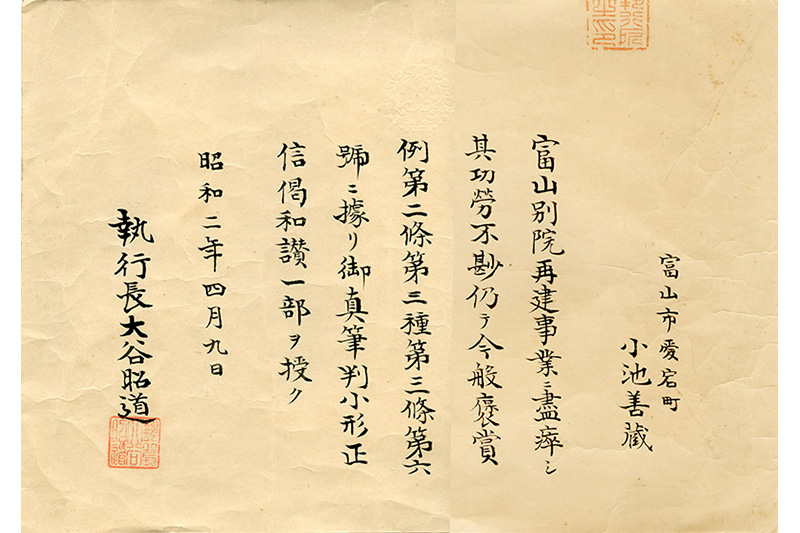 富山市愛宕町
小池善藏
富山別院再建事業ニ盡瘁シ
其功勞不尠仍テ今般褒賞
例第二條第三種第三條第六
號ニ據リ御真筆判小形正
信偈和讃一部ヲ授ク
昭和二年四月九日
執行長大谷昭道